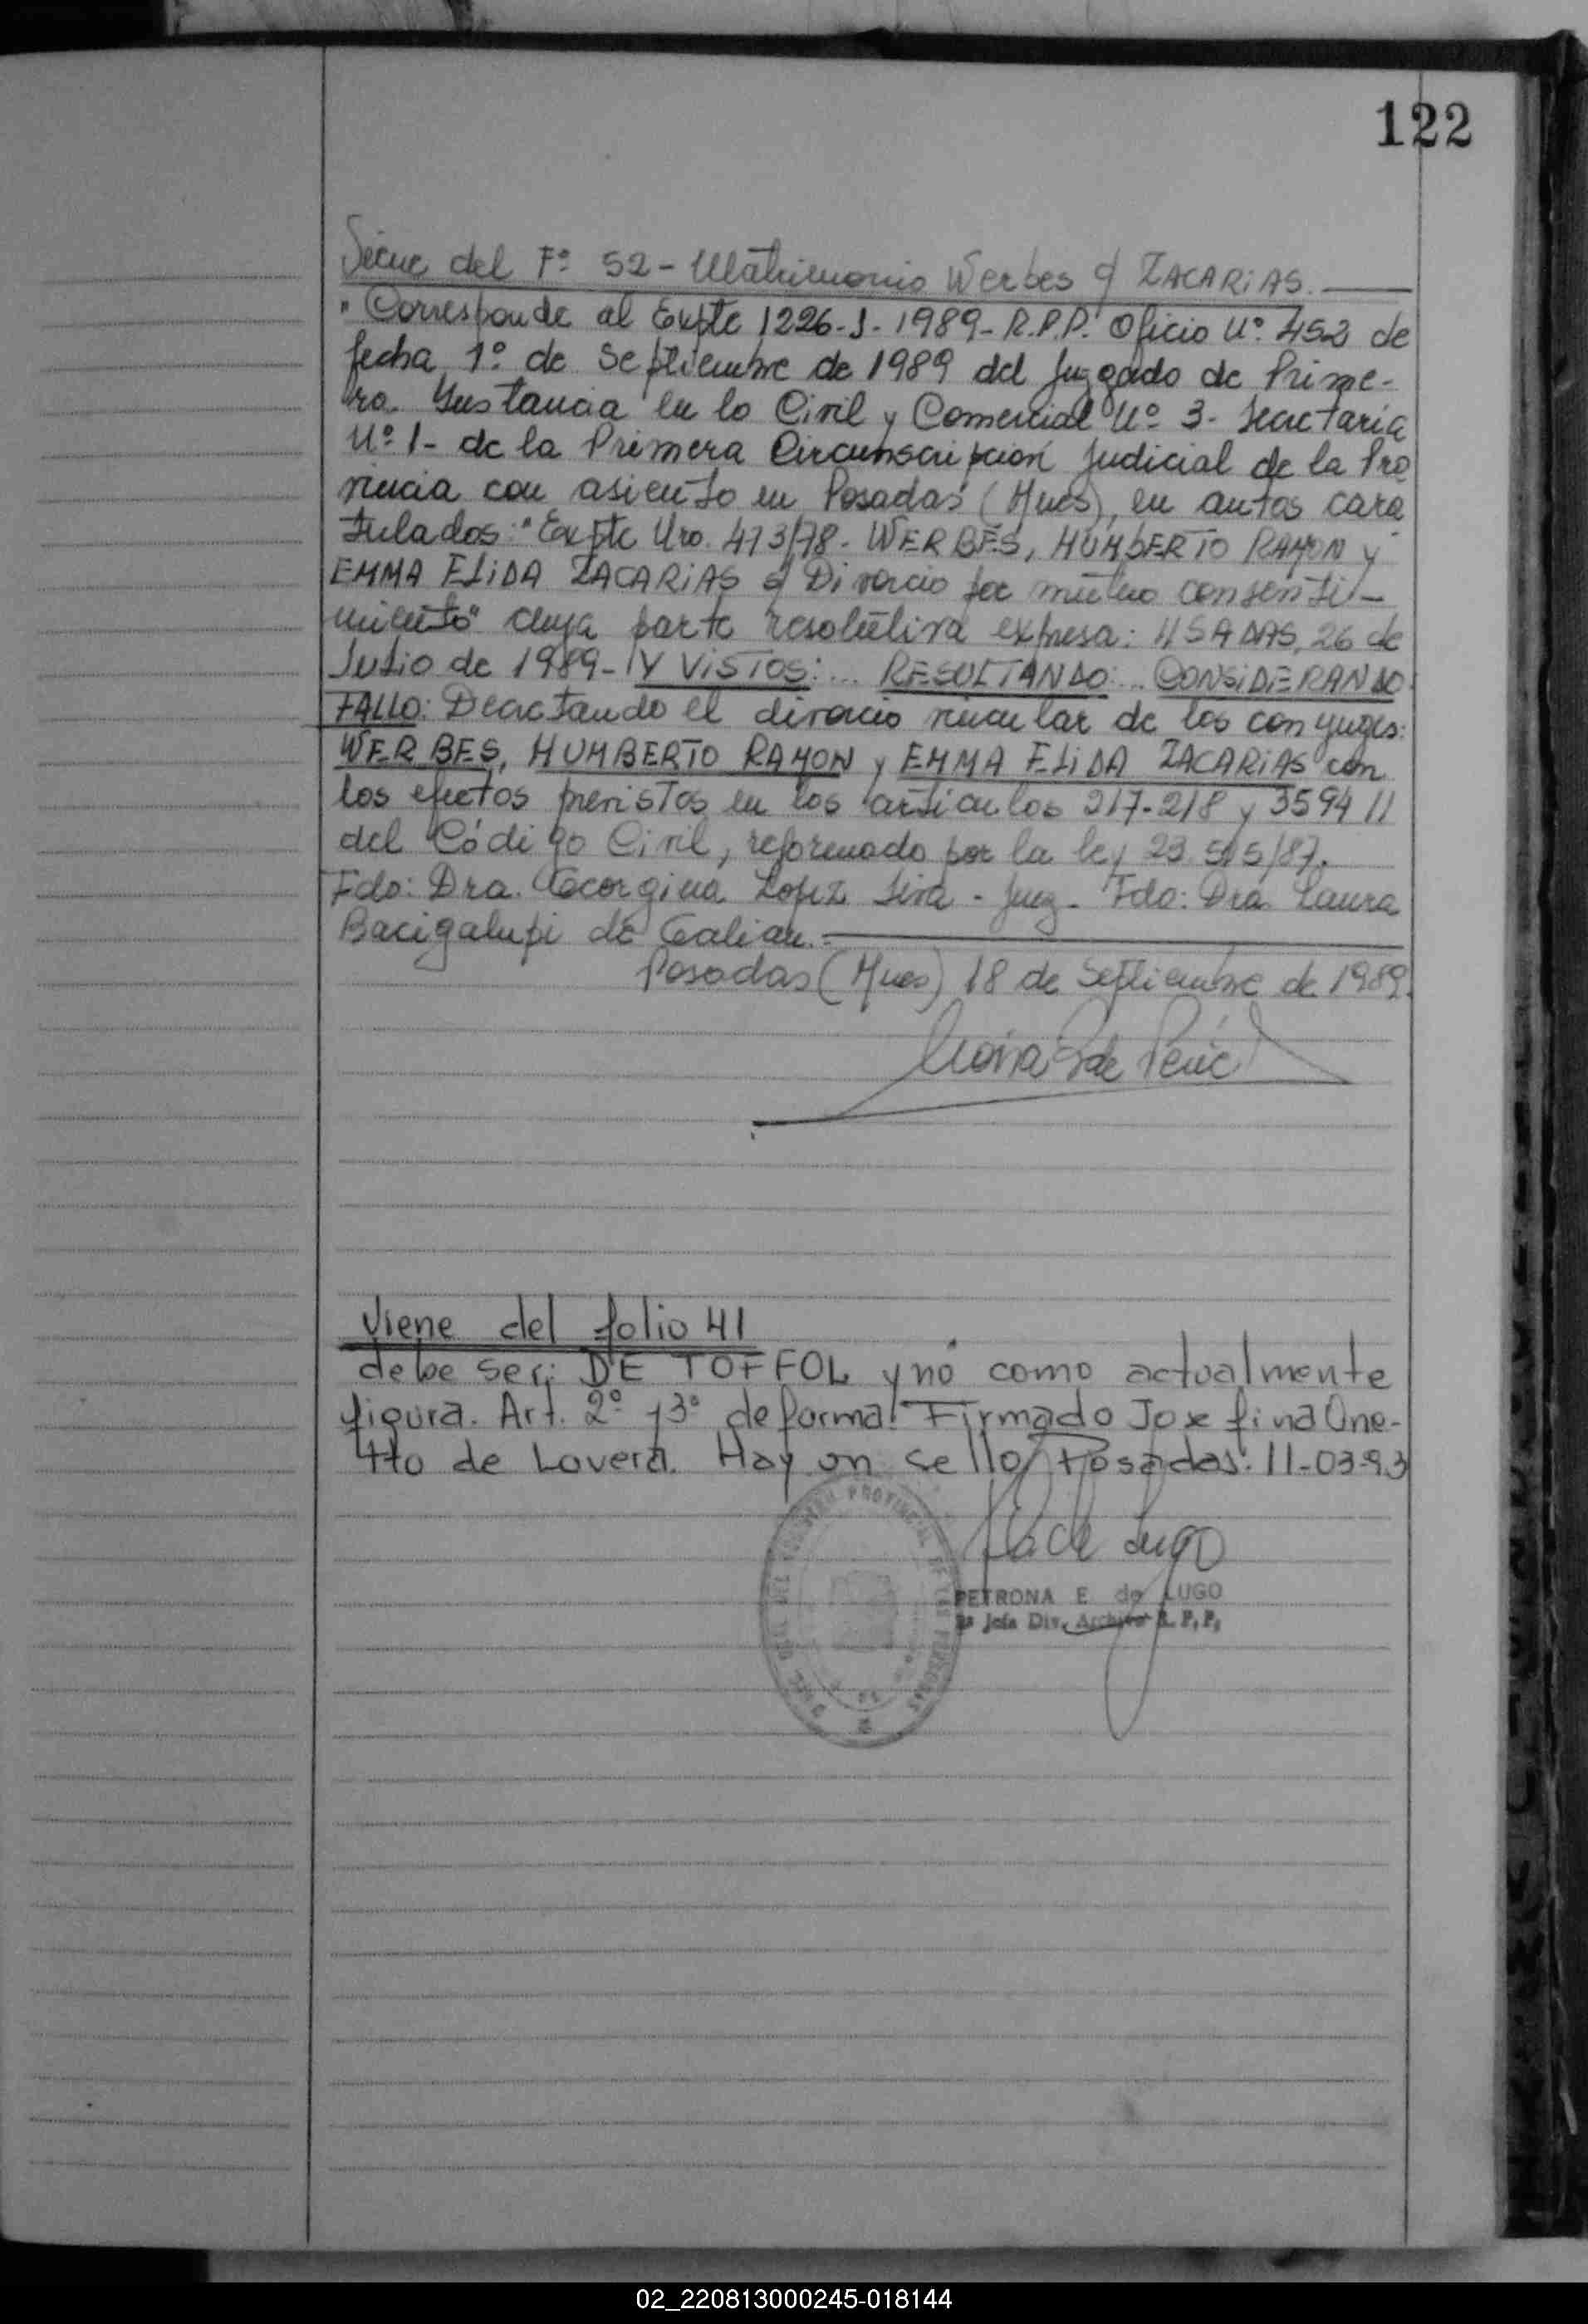 122
Sicue del Fº 52 - Matrimonio Werbes c/ ZACARIAS.
"Corresponde al Expte 1226-J-1989-R.P.P. Oficio Nº 452 de
fecha 1º de Septiembre de 1989 del Juzgado de Prime-
ra Instancia en lo Civil y Comercial Nº 3- Secretaría
Nº 1- de la Primera Circunscripción Judicial de la Pro
vincia con asiento en Posadas (Mnes), en autos cara
tulados: "Expte Nro. 473/78- WERBES, HUMBERTO RAMON y
EMMA ELIDA ZACARIAS s/ Divorcio por mútuo consenti-
miento" cuya parte resolutiva expresa: 26 de
Julio de 1989- Y VISTOS:... RESULTANDO:... CONSIDERANDO
FALLO: Decretando el divorcio vincular de los conyuges:
WERBES, HUMBERTO RAMON y EMMA ELIDA ZACARIAS con
los efectos previstos en los articulos 217-218 y 3594
del Código Civil, reformado por la ley 23.515/87.
Fdo: Dra. Georgina Lopez Liva - Juez- Fdo: Dra. Laura
Bacigalupi de Galian.-
Posadas (Mnes) 18 de Septiembre de 1989.
Viene del folio 41
debe ser: DE TOFFOL y no como actualmente
figura. Art. 2º y 3º de forma. Firmado Josefina One-
tto de Lovera. Hay un sello/ Posadas: 11-03-93
de Lugo
PETRONA E. de LUGO
Jefa Div. Archivo R. P. P.
PROVINCIAL DE LAS PERSONAS
02_220813000245-018144